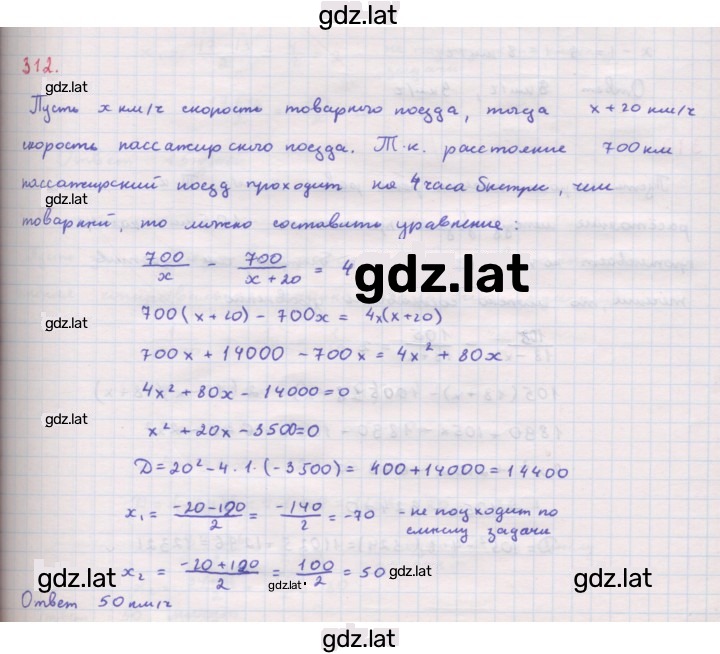 gdz.lat
312.
gdz.lat
Пусть x км/ч скорость товарного поезда, тогда x + 20 км/ч
скорость пассажирского поезда. Т.к. расстояние 700 км
пассажирский поезд проходит на 4 часа быстрее, чем
gdz.lat gdz.lat
товарный, то можно составить уравнение:
700/x - 700/(x+20) = 4
gdz.lat
700(x+20) - 700x = 4x(x+20)
700x + 14000 - 700x = 4x² + 80x
4x² + 80x - 14000 = 0
gdz.lat
x² + 20x - 3500=0
D = 20² - 4·1·(-3500) = 400 + 14000 = 14400
x₁ = (-20-120)/2 = -140/2 = -70 - не подходит по
смыслу задачи
gdz.lat gdz.lat
x₂ = (-20+120)/2 = 100/2 = 50
gdz.lat gdz.lat
Ответ 50 км/ч
gdz.lat